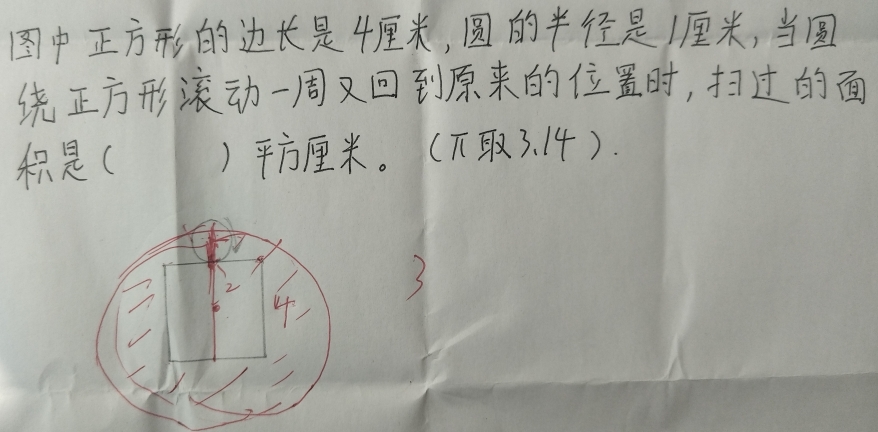 图中正方形的边长是4厘米,圆的半径是1厘米,当圆
绕正方形滚动一周又回到原来的位置时,扫过的面
积是( )平方厘米。(π取3.14).
2
4
3